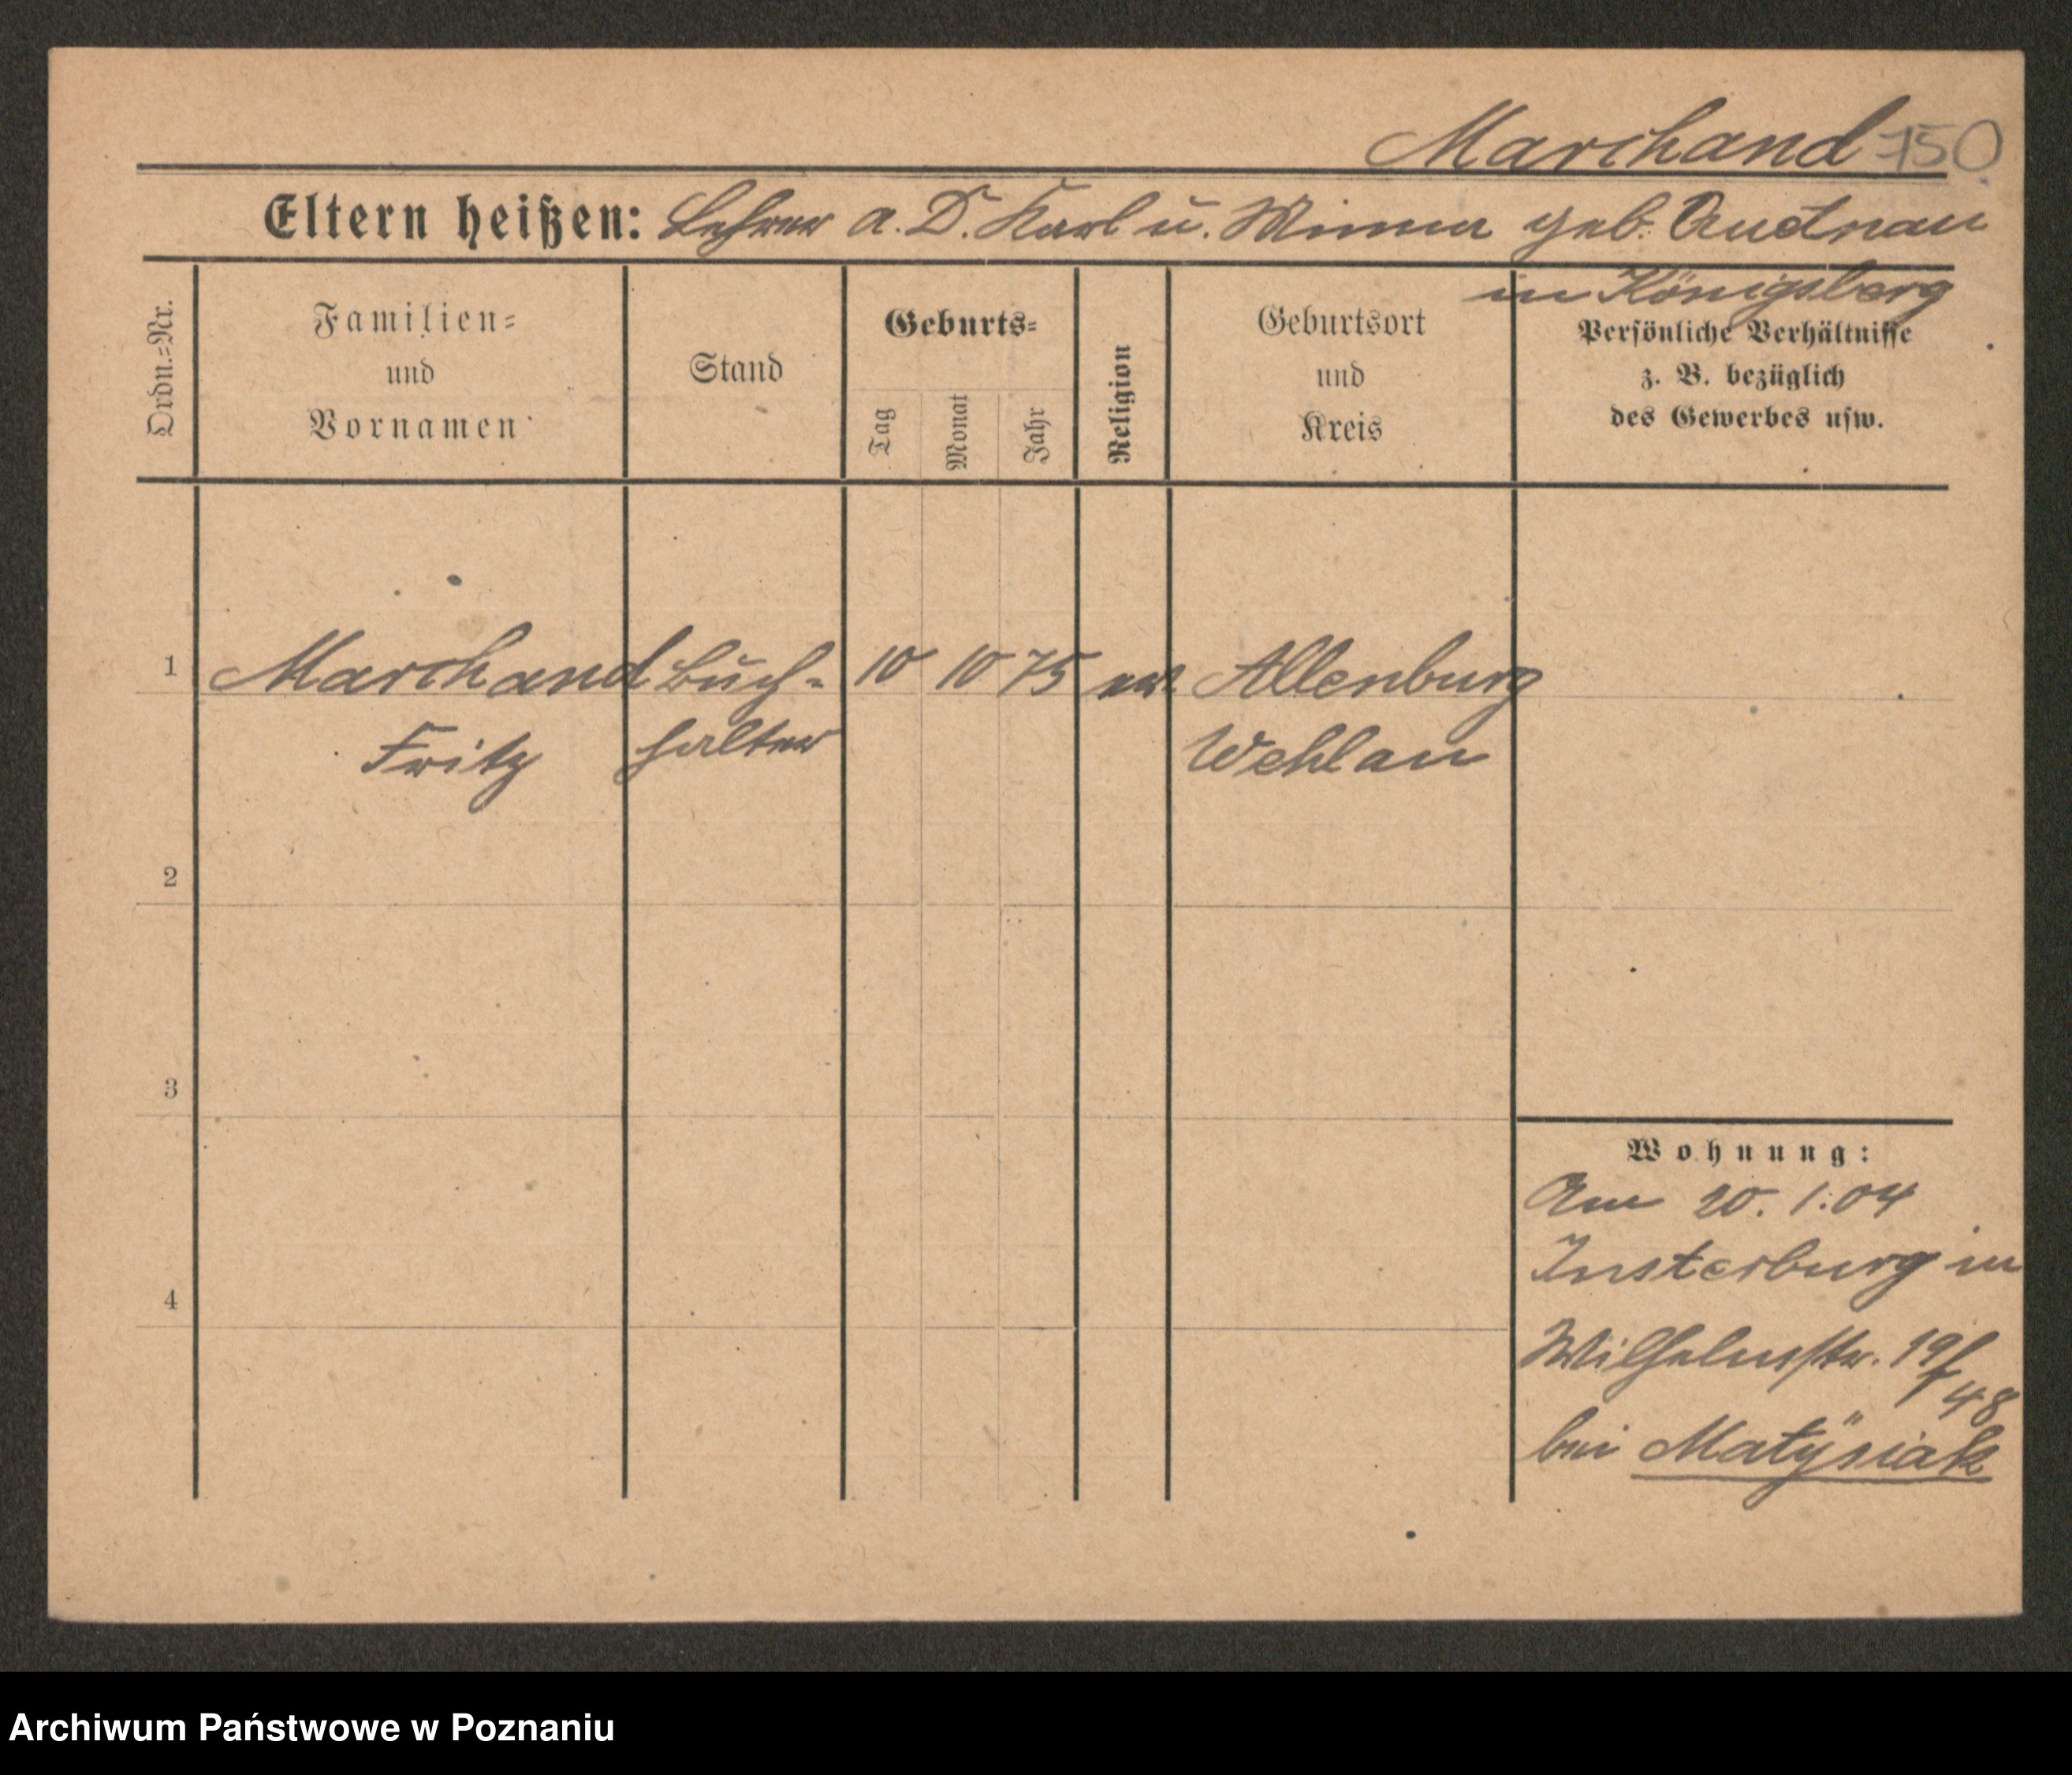 Marchand 750
Eltern heißen: Lehrer a. D. Karl u. Minna geb. Audnau
in Königsberg
Ordn.=Nr.
Familien=
und
Vornamen
Stand
Geburts=
Tag
Monat
Jahr
Religion
Geburtsort
und
Kreis
Persönliche Verhältnisse
z. B. bezüglich
des Gewerbes usw.
1 Marchand Buch- 10 10 75 ev. Allenburg
Fritz halter Wehlau
2
3
4
Wohnung:
Am 20. 1. 04
Insterburg in
Wilhelmstr. 19/
48
bei Matÿsiak
Archiwum Państwowe w Poznaniu